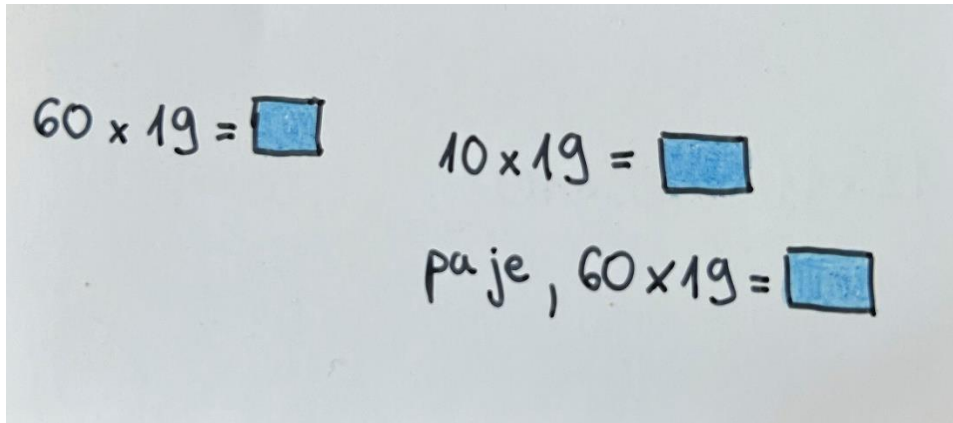 60 x 19 =
10 x 19 =
pa je, 60 x 19 =